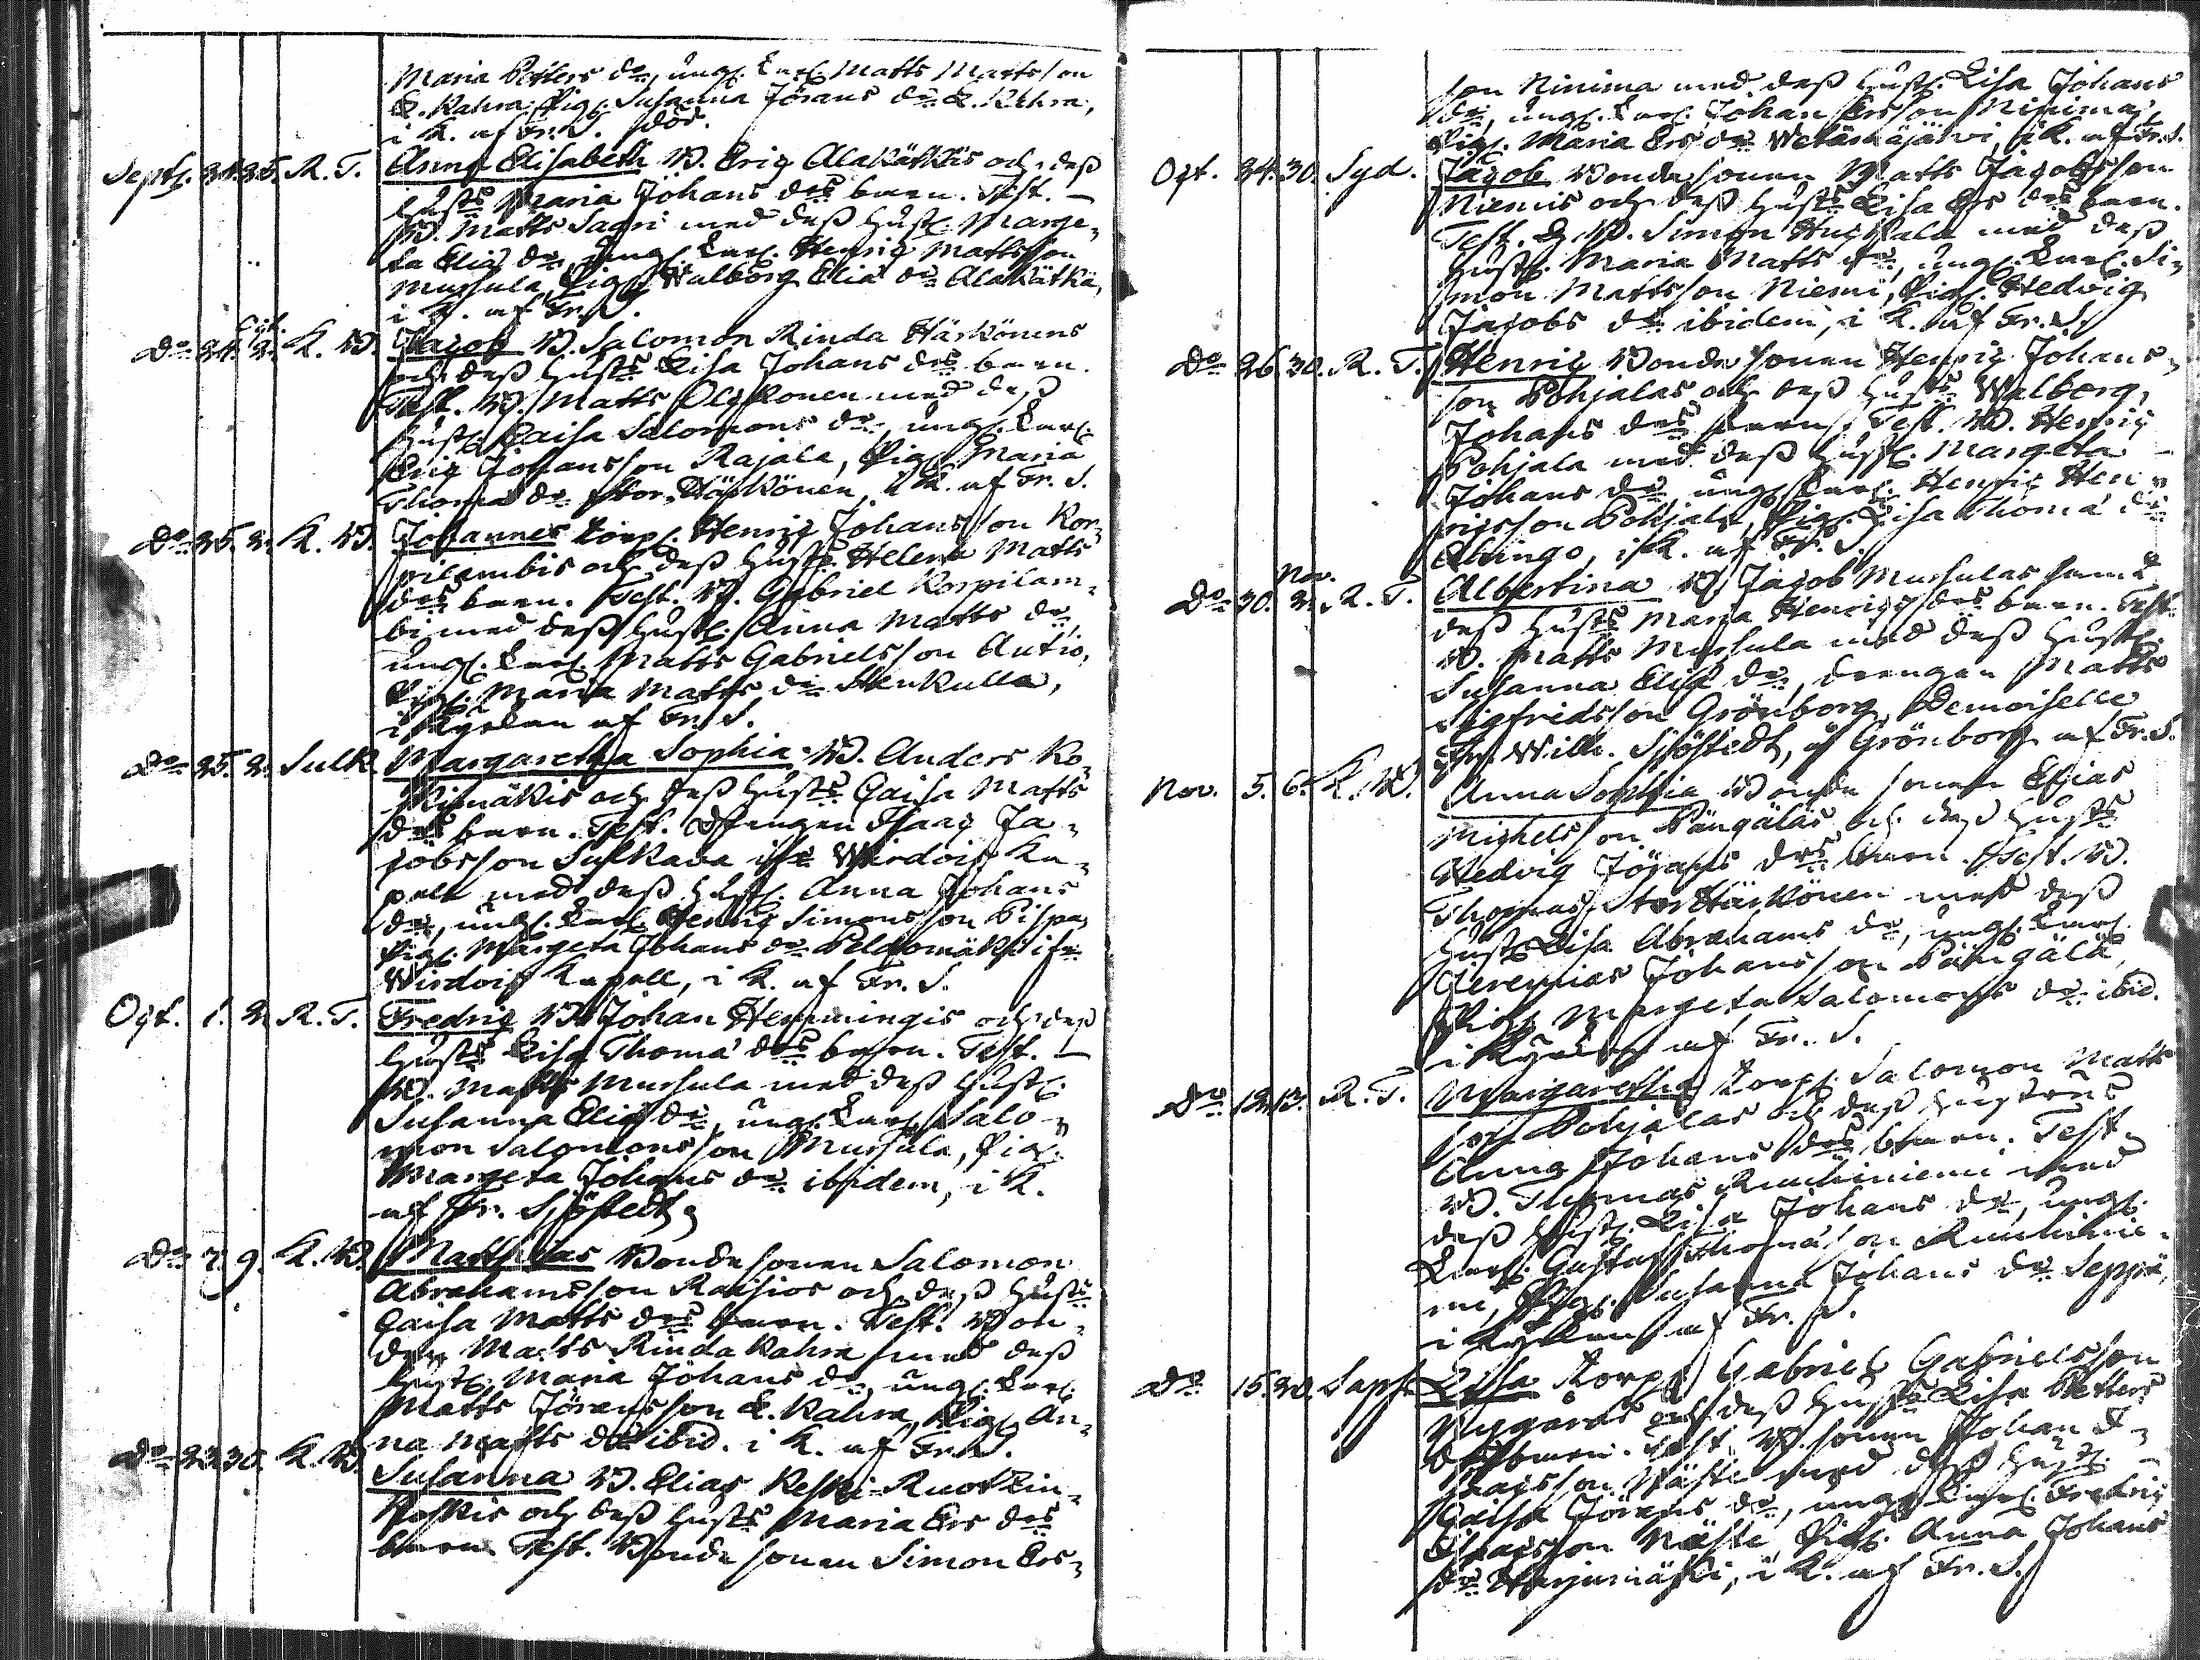 Maria Petters dr, ungk. Karl. Matts Mattsson
L. Kahra, Pig. Susanna Jörans dr L. Kahra,
i K. af Fr. S. död.
Sept. 24. 25. R. T. Anna Elisabeth B. Eric Alakätkis och deß
hust:s Maria Johans dr:s barn. Test. –
B. Matts Sagri med deß hust. Marge-
ta Elia dr, ungk. Karl. Henric Mattsson
Mursula, Pig. Walborg Elia dr Alakätkä,
i K. af Fr. S.
Oct.
Do 24. 2. K. B. Jacob B. Salomon Rinda Härkönens
och deß hust:s Lisa Johans dr:s barn.
Test. B. Matts Olkkonen med deß
hust. Caisa Salomons dr, ungk. Karl.
Eric Johansson Rajala, Pig. Maria
Thoma dr Stor Härkönen, i K. af Fr. S.
Do 25. 2. K. B. Johannes Torp. Henric Johansson Kor-
pilambis och deß hust:s Helena Matts
dr:s barn. Test. B. Gabriel Korpilam-
bi med deß hust. Anna Matts dr,
ungk. Karl. Matts Gabrielsson Autio,
Pig. Maria Matts dr Stenkulla,
i Kyrkan af Fr. S.
Do 25. 2. Sulk. Margaretha Sophia B. Anders Ko-
kimäkis och deß hust:s Caisa Matts
dr:s barn. Test. Drengen Isaac Ja-
cobsson Sulkava ifr Wirdois Ka-
pell med deß hust. Anna Johans
dr, ungk. Karl. Henric Simonsson Pispa,
Pig. Margeta Johans dr Peldomäki ifr
Wirdois Kapell, i K. af Fr. S.
Oct. 1. 2. R. T. Fredric B. Johan Hemmingis och deß
hust:s Lisa Thoma dr:s barn. Test. –
B. Matts Mursula med deß hust.
Susanna Elia dr, ungk. Karl. Salo-
mon Salomonsson Mursula, Pig.
Margeta Johans dr ibidem, i K.
af Fr. Sjöstedt
Do 7. 9. K. B. Matthias Bondesonen Salomon
Abrahamsson Raisios och deß hust:s
Caisa Matts dr:s barn. Test. Bon-
den Matts Rinda Kahra med deß
hust. Maria Johans dr, ungk. Karl.
Matts Jöransson L. Kahra, Pig. An-
na Matts dr ibid. i K. af Fr. S.
Do 23. 30. K. B. Susanna B. Elias Keski-Ruokin-
koskis och deß hust:s Maria Ers dr:s
barn. Test. Bondesonen Simon Ers-
son Ninima med deß hust. Lisa Johans
dr, ungk. Karl. Johan Ersson Ninima,
Pig. Maria Ers dr Wetämäjärvi, i K. af Fr. S.
Oct. 24. 30. Syd. Jacob Bondesonen Matts Jacobsson
Niemis och deß hust:s Lisa Ers dr:s barn.
Test. B. Simon Huhtala med deß
hust. Maria Matts dr, ungk. Karl. Si-
mon Mattsson Niemi, Pig. Hedvig
Jacobs dr ibidem, i K. af Fr. S.
Do 26. 30. R. T. Henric Bondesonen Henric Johans-
son Pohjalas och deß hust:s Walborg
Johans dr:s barn. Test. B. Henric
Pohjala med deß hust. Margeta –
Johans dr, ungk. Karl. Henric Hen-
ricsson Pohjala, Pig. Lisa Thoma dr
Elvingo, i K. af Fr. S.
Nov.
Do 30. 2. R. T. Albertina B. Jacob Mursulas samt
deß hust:s Maria Henrics dr:s barn. Test.
B. Matts Mursula med deß hust.
Susanna Elia dr, drengen Matts
Sigfridsson Grönborg, Demoiselle
Fr. Wilh. Sjöstedt, på Grönborg af Fr. S.
Nov. 5. 6. K. B. Anna Sophia Bondesonen Elias
Michelsson Pängäläs och deß hust:s
Hedvig Jörans dr:s barn. Test. B.
Thomas Stor Härkönen med deß
hust. Lisa Abrahams dr, ungk. Karl.
Jeremias Johansson Pängälä,
Pig. Margeta Salomons dr ibid.
i Kyrkan af Fr. S.
Do 12. 13. R. T. Margaretha Torp. Salomon Matts
son Pohjalas och deß hustrus
Anna Johans dr:s barn. Test.
B. Thomas Ruuhiniemi med
deß hust. Lisa Johans dr, ungk.
Karl. Gustaf Thomasson Ruuhinie-
mi, Pig. Susanna Johans dr Seppä,
i Kyrkan af Fr. S.
Do 15. 20. Saps. Lisa Torp. Gabriel Gabrielsson
Nygårds och deß hust:s Lisa Petters
dr:s barn. Test. B. sonen Johan I-
saacsson Nästi med deß hust.
Caisa Jörans dr, ungk. Karl. Fredric
Isaacsson Nästi, Pig. Anna Johans
dr Harjumäki, i K. af Fr. S.